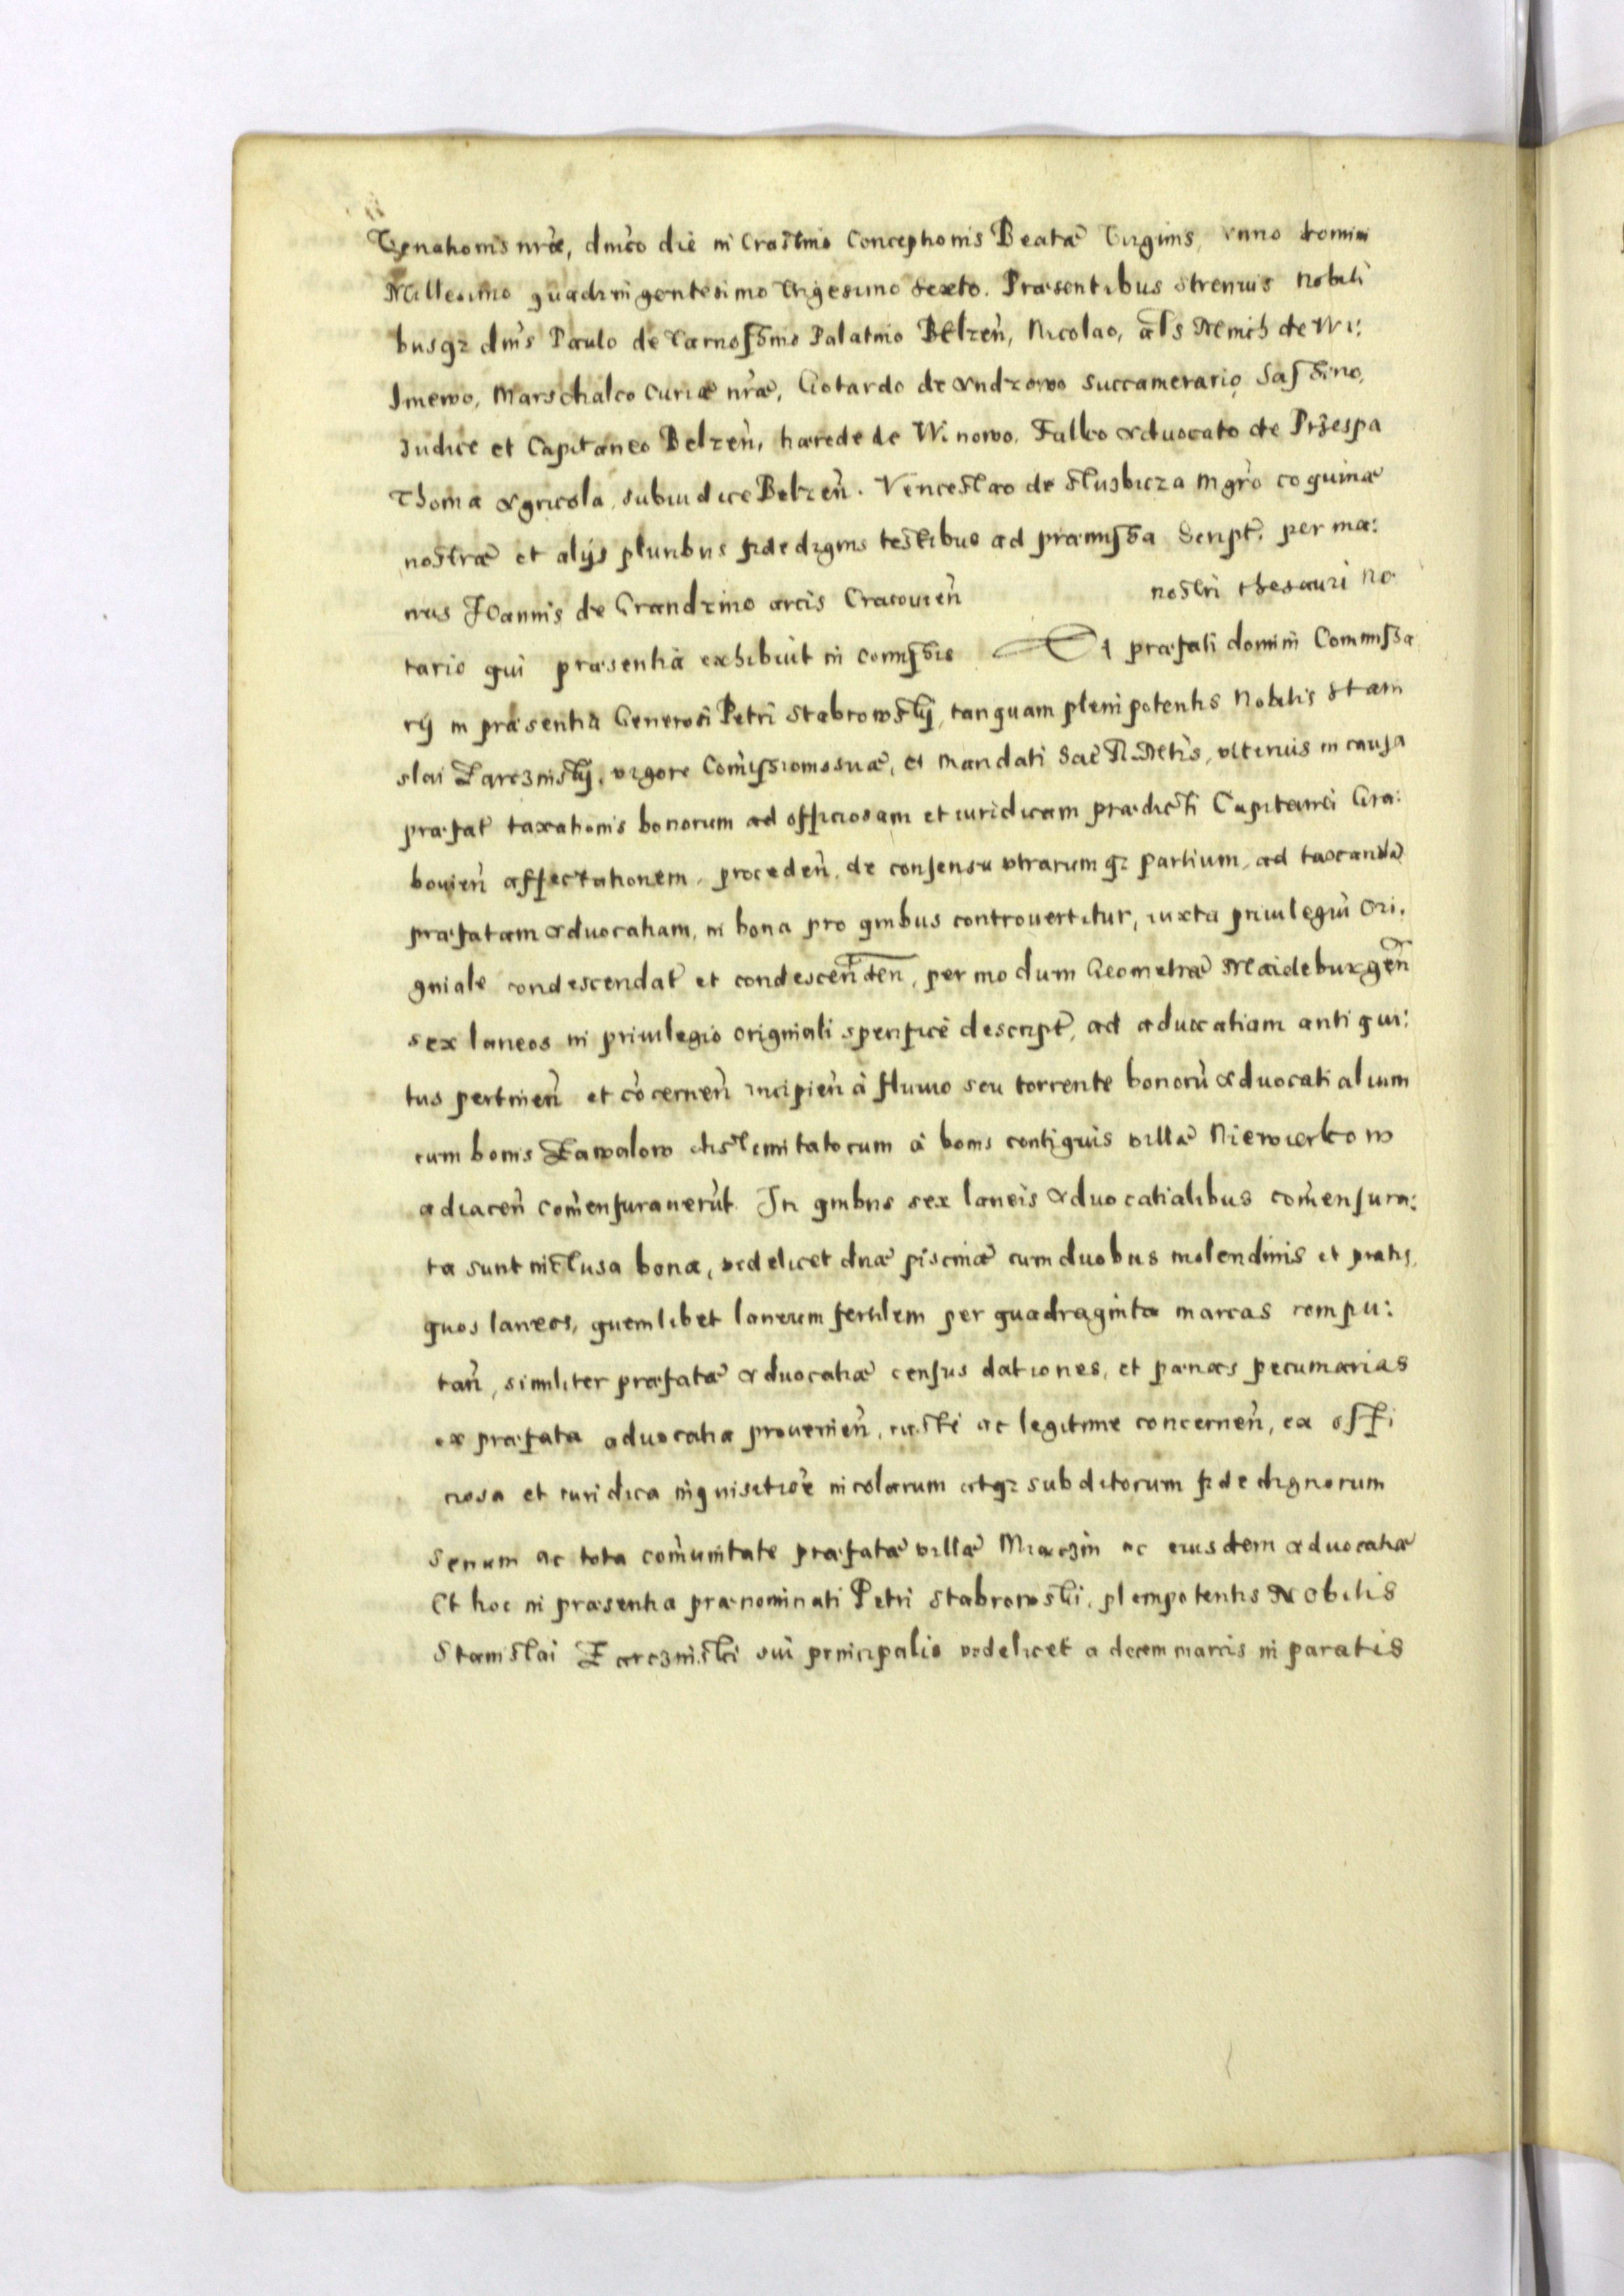 Venationis nrӕ, dnico die in Crastino Conceptionis Beatæ Virginis, Anno domini
Millesimo quadringentesimo trigesimo sexto. Præsentibus strenuis nobili
busqz dnis Paulo de Tarnossino Palatino Belzeǹ, Nicolao, als Niemich de Wi:
smewo, Marschalco Curiæ nræ, Gotardo de Andzowo succamerario, Sassino,
Iudice et Capitaneo Belzeǹ, hærede de Winowo, Falko Aduocato de Przespa
Thoma Agricola, subiudice Belzeǹ. Venceslao de Slusbicza mgro coquinæ
nostræ et alijs pluribus fide dignis testibus ad præmissa Script, per ma:
nus Joannis de Grandzino arcis Cracouieǹ nostri thesauri no
tario qui præsentia exhibuit in comissis Et præfati domini Commissa
rij in præsentia Generosi Petri Stabrowskij, tanquam plenipotentis Nobilis Stani
slai Zarczinskij, vigore Comissionis suæ, et mandati Sac R. Mtis, vlterius in causa
præfat taxationis bonorum ad officiosam et iuridicam prædicti Capitanei Gra:
bouieǹ affectationem, procedeǹ, de consensu vtrarumqz partium, ad taxandā
præfatam Aduocatiam, in bona pro quibus controuertitur, iuxta priuilegiù Ori:
ginale condescendat et condescendeǹ, per modum Geometræ Maideburgeǹ
sex laneos in priuilegio originali specificè descript, ad aduocatiam antiqui:
tus pertineǹ et còcerneǹ incipieǹ à fluuio seu torrente bonorù Aduocatialium
cum bonis Zawalow distimitatorum à bonis contiguis villæ Niewierkow
adiaceǹ comensurauerùt. In quibus sex laneis Aduocatialibus comensura:
ta sunt inclusa bona, videlicet duæ piscinæ cum duobus molendinis et pratis,
quos laneos, quemlibet laneum fertilem per quadraginta marcas compu:
taǹ, similiter præfatæ Aduocatiæ census dationes, et pænas pecuniarias
ex præfata aduocatia prouenieǹ, iuste ac legitime concerneǹ, ex offi
ciosa et iuridica inquisitioe incolarum atqz subditorum fide dignorum
Senum ac tota comunitate præfatæ villæ Miaczin ac eiusdem Aduocatiæ
Et hoc in præsentia prænominati Petri Stabrowski, plenipotentis Nobilis
Stanislai Zarczinski sui principalis videlicet a decem marcis in paratis